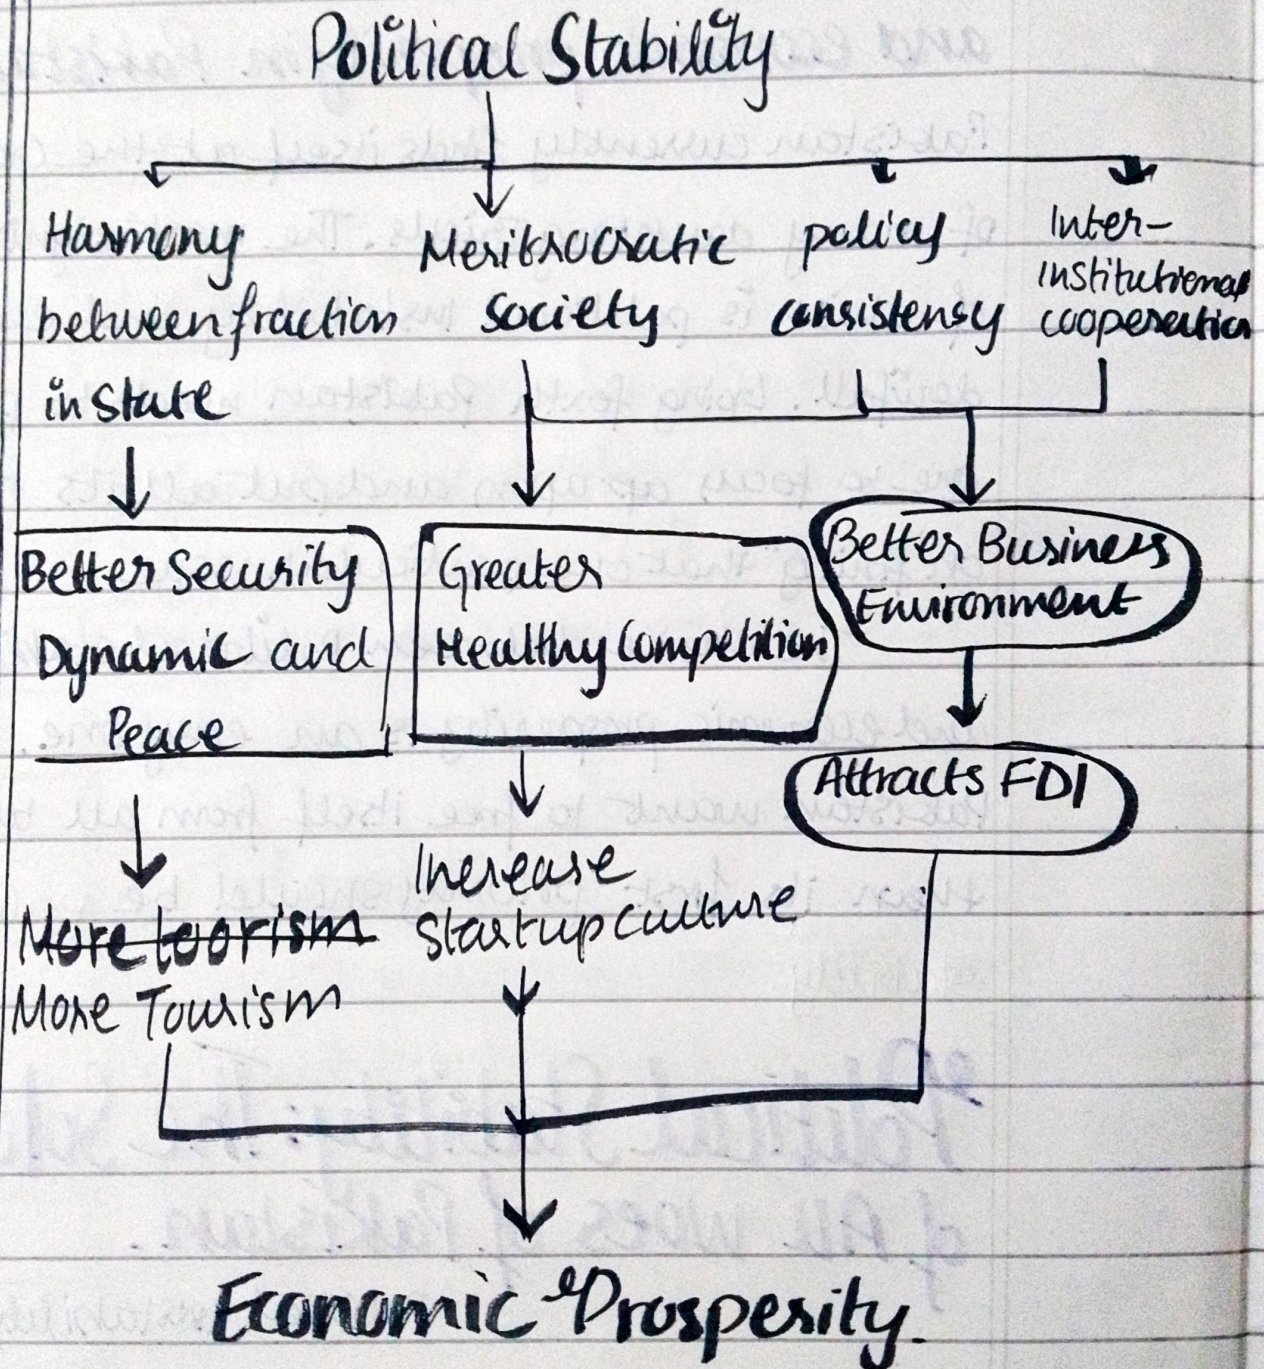 Political Stability
Harmony
between fraction
in state
Meritrocratic
society
policy
consistency
Inter-
institutional
cooperation
Better Security
Dynamic and
Peace
Greater
Healthy Competition
Better Business
Environment
Attracts FDI
More toorism
More Tourism
Increase
Startup culture
Economic Prosperity.